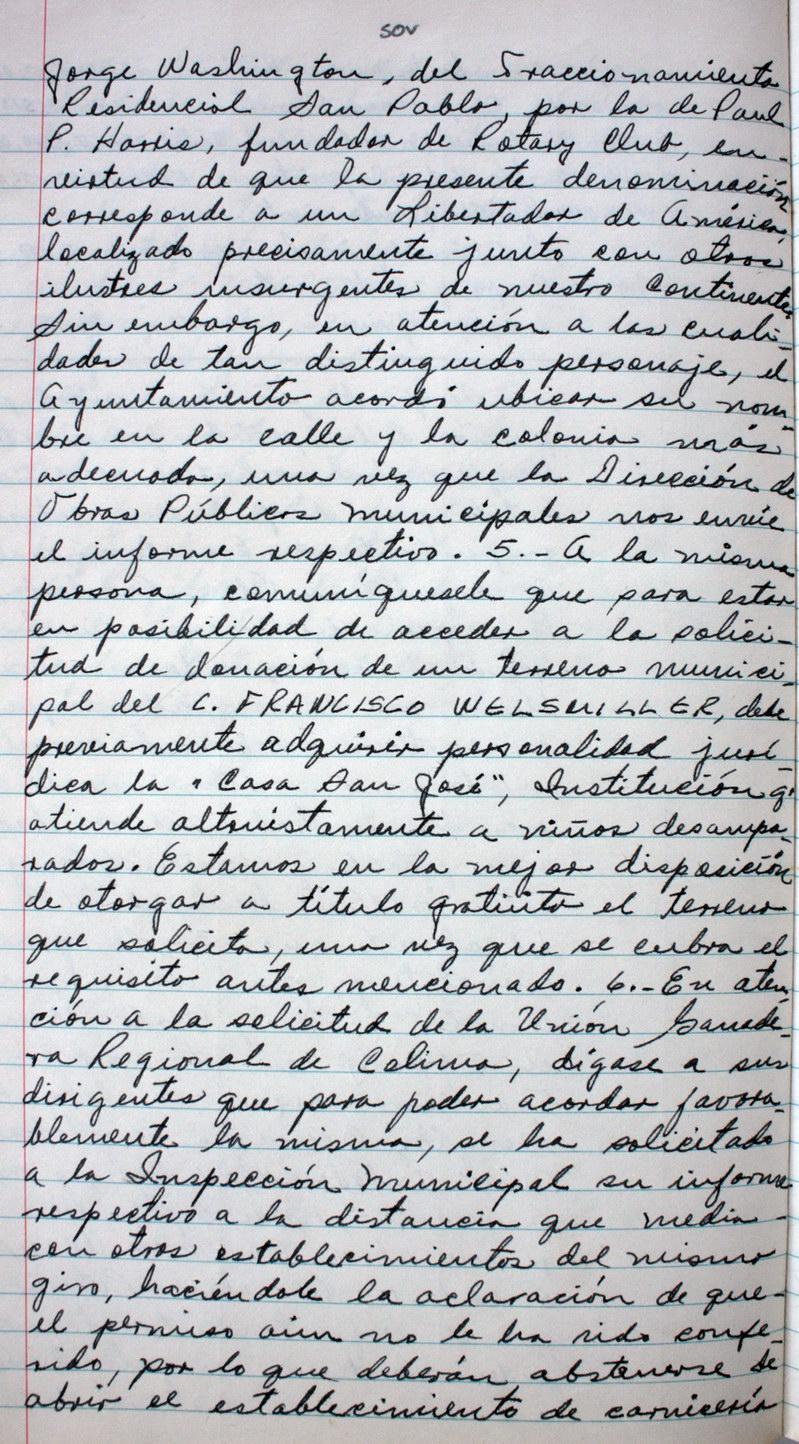 sov
Jorge Washington, del Fraccionamiento
Residencial San Pablo, por la de Paul
P. Harris, fundador de Rotary Club, en-
virtud de que la presente denominación
corresponde a un Libertador de América,
localizado precisamente junto con otros
ilustres insurgentes de nuestro Continente.
Sin embargo, en atención a las cuali-
dades de tan distinguido personaje, el
Ayuntamiento acordó ubicar su nom-
bre en la calle y la colonia más
adecuada, una vez que la Dirección de
Obras Públicas Municipales nos envíe
el informe respectivo. 5.- A la misma
persona, comuníquesele que para estar
en posibilidad de acceder a la solici-
tud de donación de un terreno munici-
pal del C. FRANCISCO WELSMILLER, debe
previamente adquirir personalidad jurí-
dica la "Casa San José", Institución q'
atiende altruistamente a niños desampa-
rados. Estamos en la mejor disposición
de otorgar a título gratuito el terreno
que solicita, una vez que se cubra el
requisito antes mencionado. 6.- En aten-
ción a la solicitud de la Unión Ganade-
ra Regional de Colima, dígase a sus
dirigentes que para poder acordar favora-
blemente la misma, se ha solicitado
a la Inspección Municipal su informe
respectivo a la distancia que media-
con otros establecimientos del mismo
giro, haciéndole la aclaración de que-
el permiso aún no le ha sido confe-
rido, por lo que deberán abstenerse de
abrir el establecimiento de carnicería